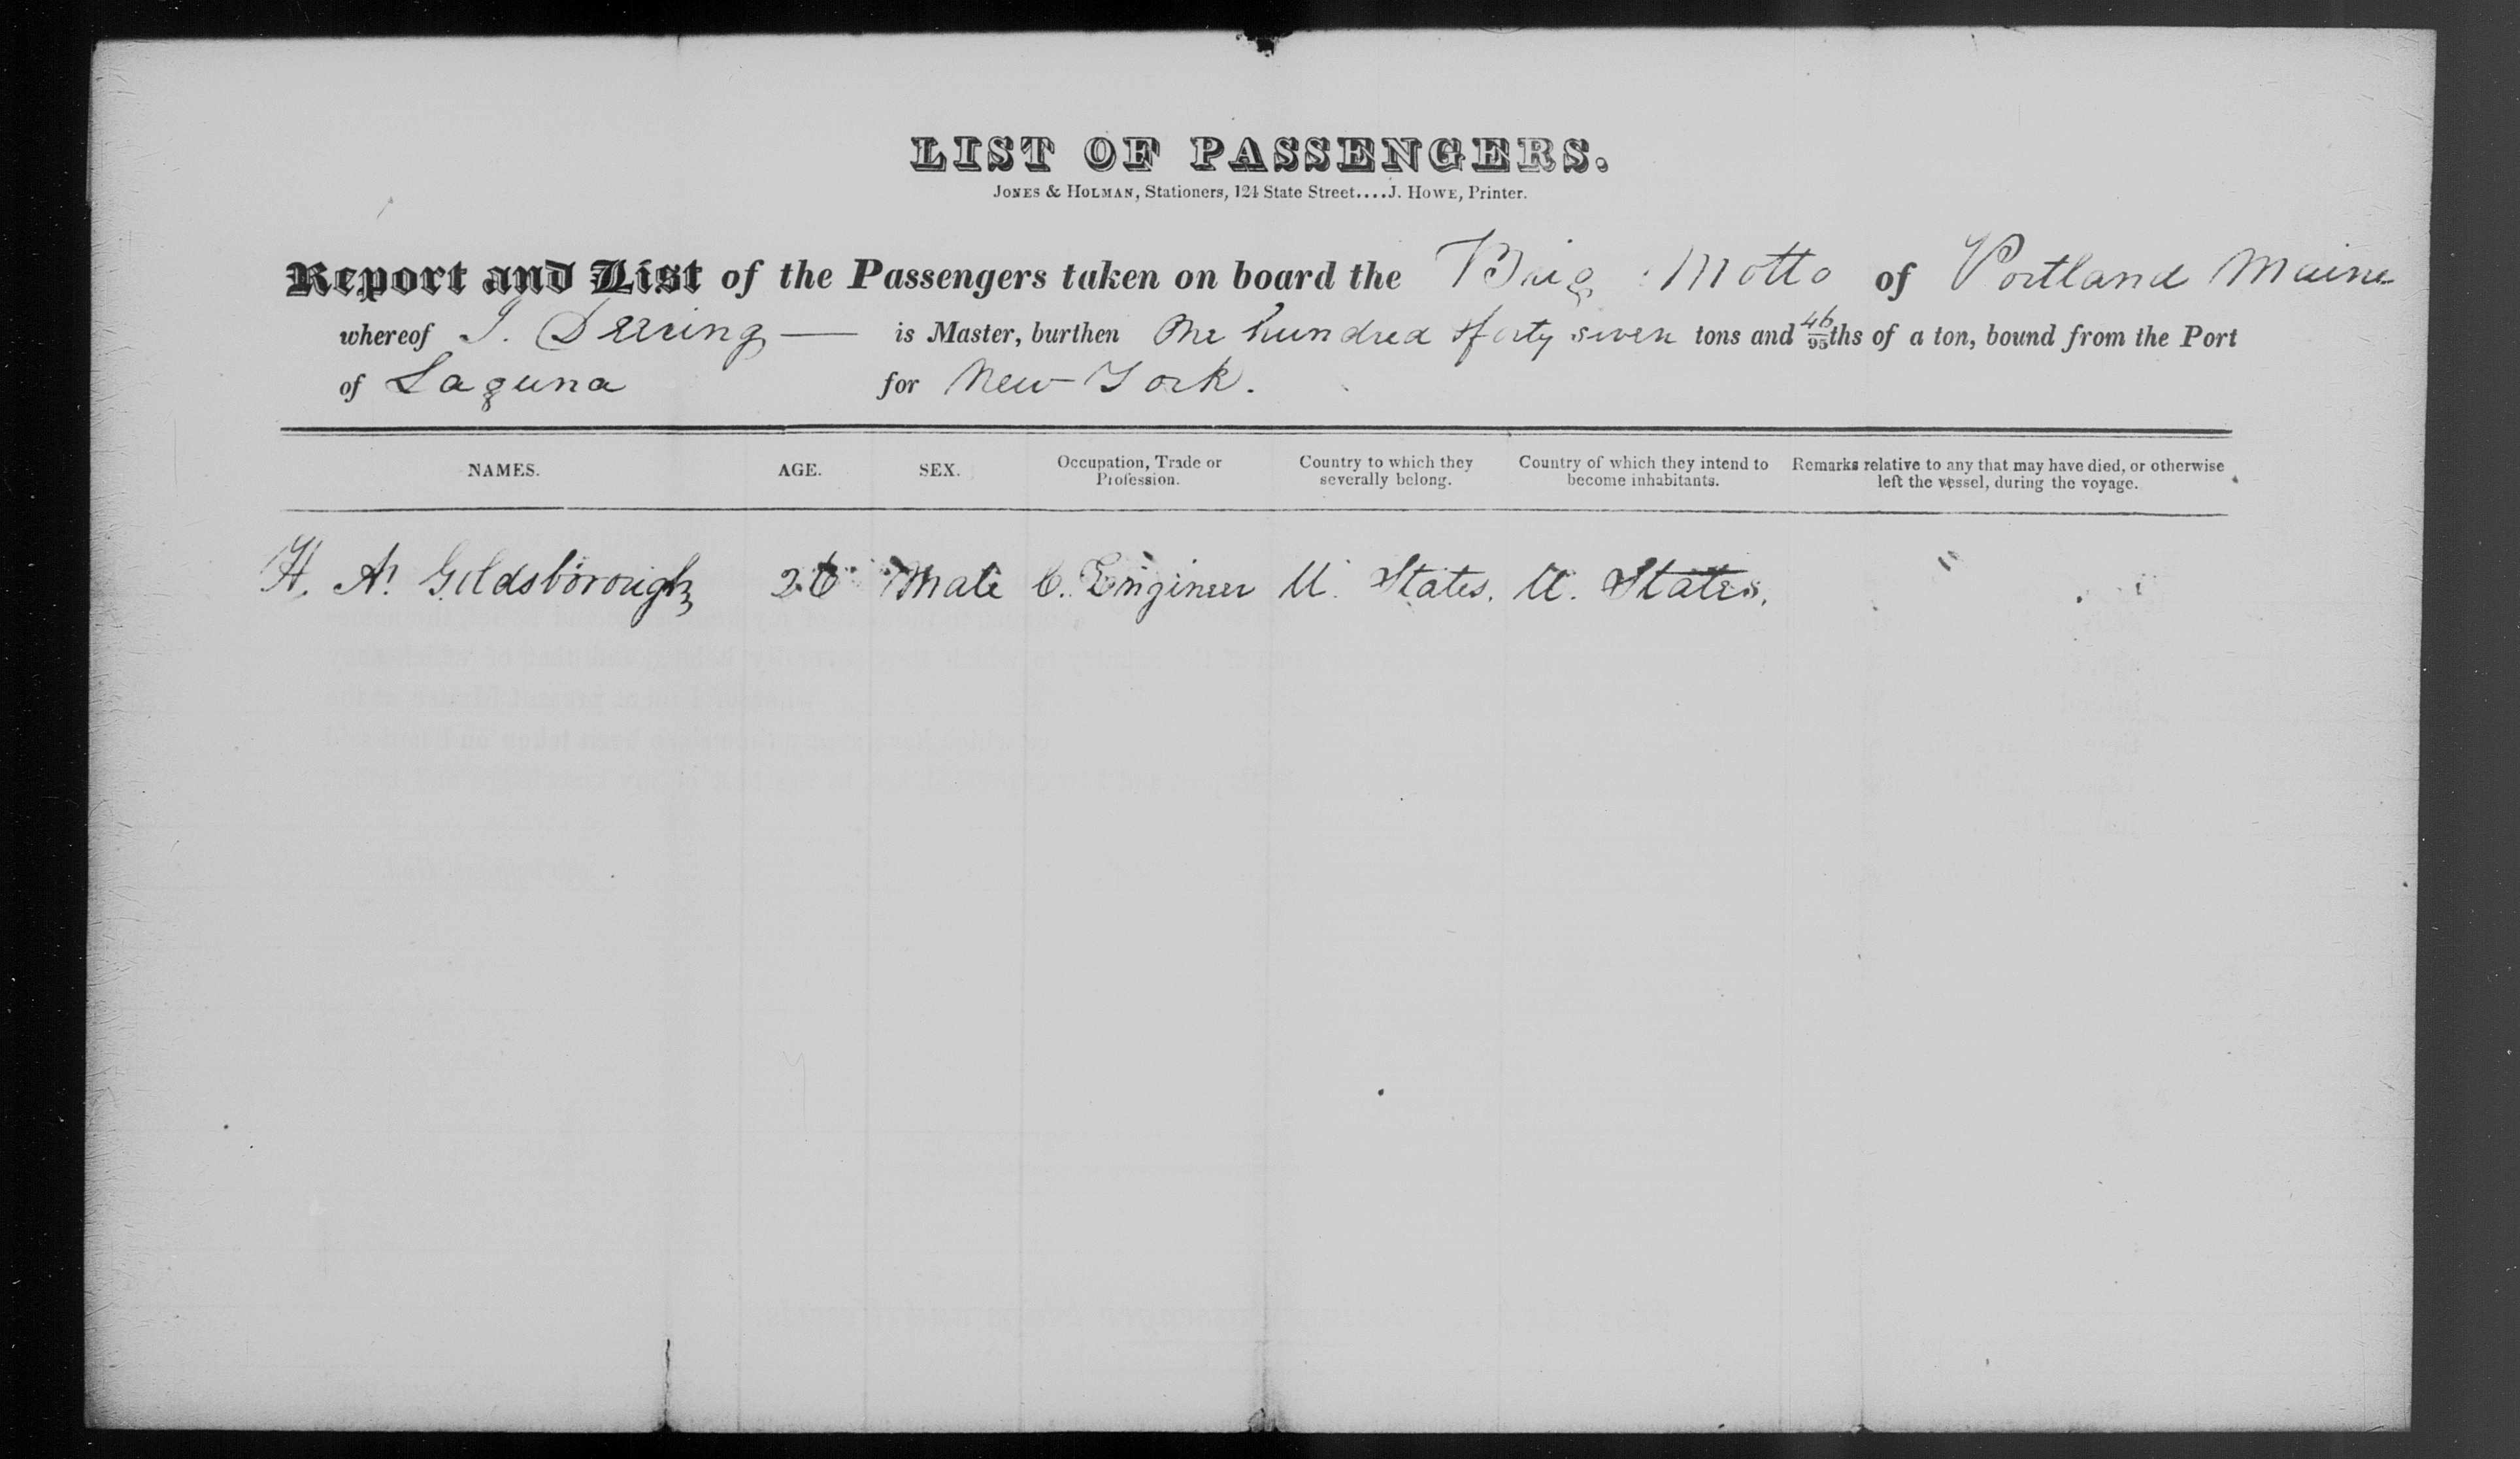 LIST OF PASSENGERS.
JONES & HOLMAN, Stationers, 124 State Street....J. HOWE, Printer.
Report and List of the Passengers taken on board the Brig Motto of Portland Maine
whereof J. Derring is Master, burthen One hundred & forty seven tons and 46/95ths of a ton, bound from the Port
of Laguna for New York.
NAMES. AGE. SEX. Occupation, Trade or Profession. Country to which they severally belong. Country of which they intend to become inhabitants. Remarks relative to any that may have died, or otherwise left the vessel, during the voyage.
H. A. Goldsborough 26 Male C. Engineer U. States. U. States. "